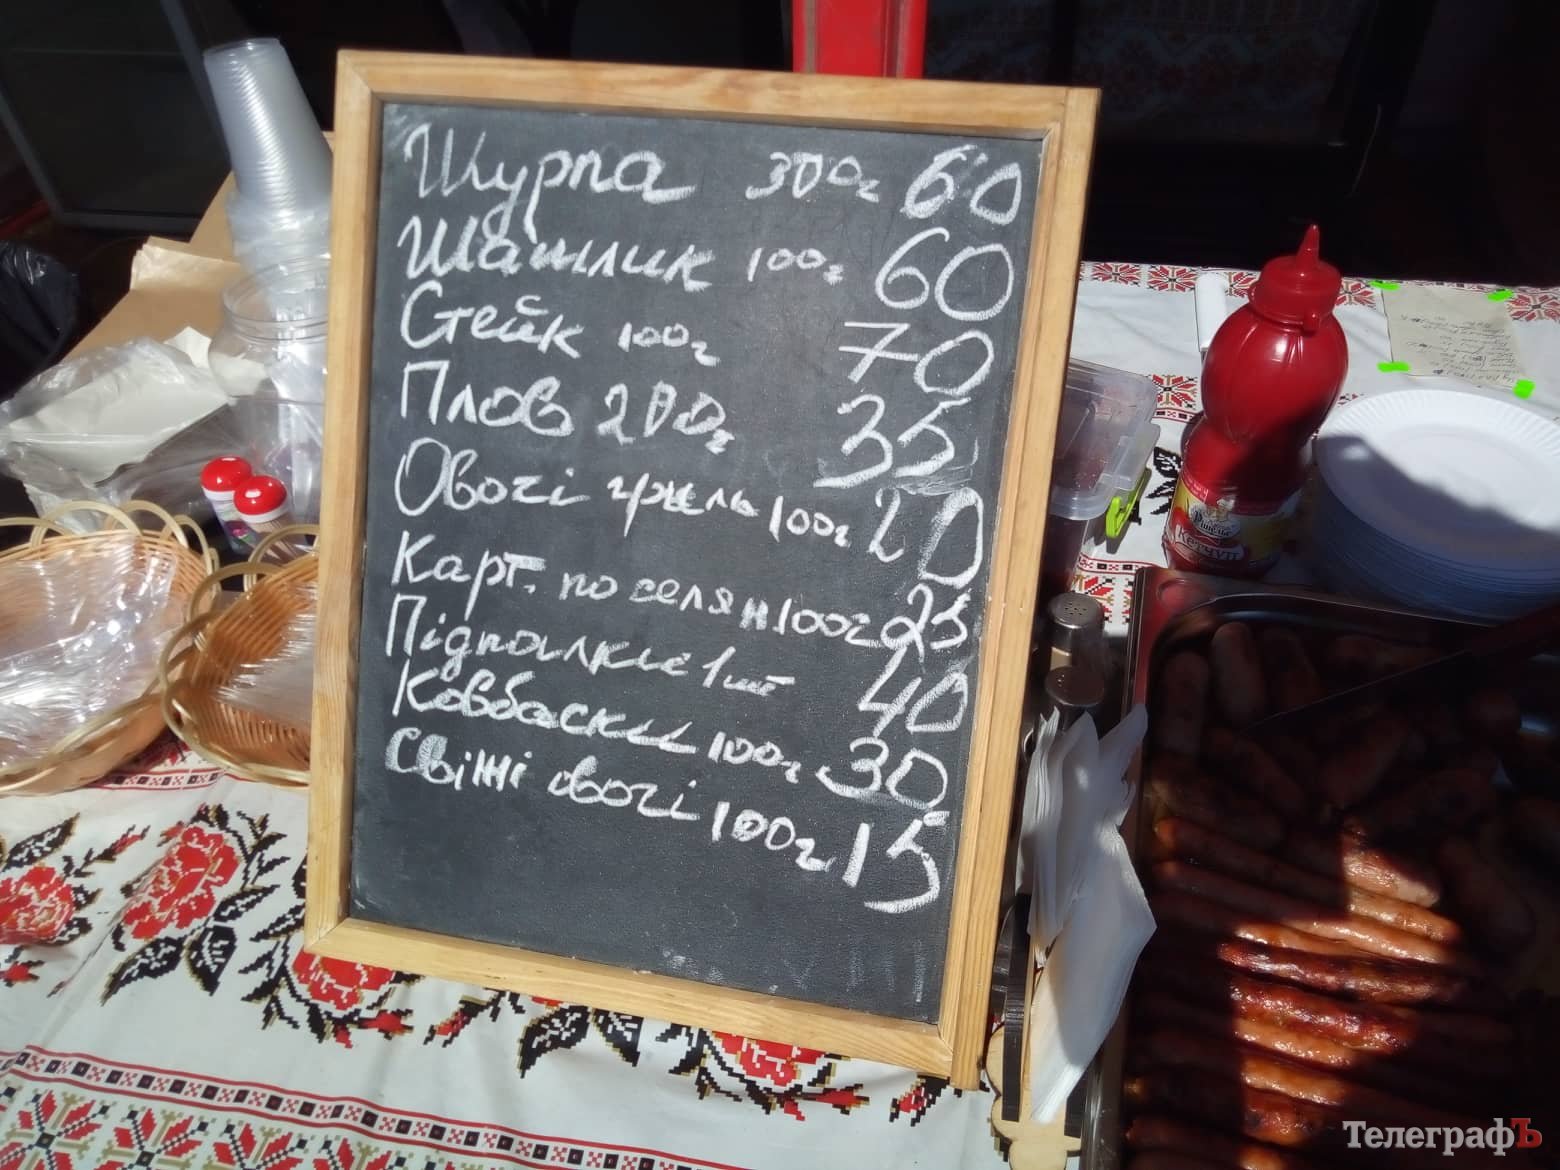 Шурпа 300г 60
Шашлик 100г 60
Стейк 100г 70
Плов 200г 35
Овочі гриль 100г 20
Карт. по селян 100г 25
Підпалкі 1 шт 40
Ковбаски 100г 30
Свіжі овочі 100г 15
Кетчуп
ТелеграфЪ